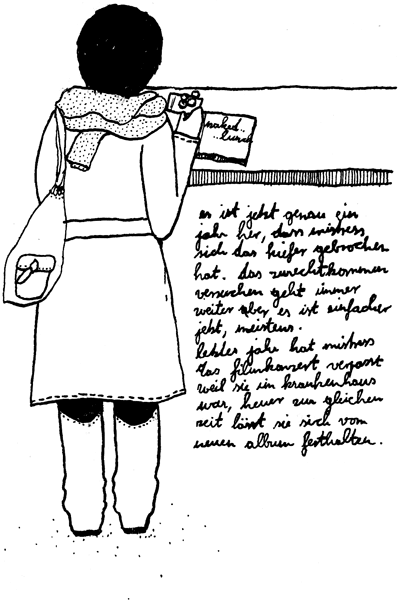 naked..
..lunch
es ist jetzt genau ein
jahr her, dass mistress
sich das kiefer gebrochen
hat. das zurechtkommen
versuchen geht immer
weiter aber es ist einfacher
jetzt, meistens.
letztes jahr hat mistress
das filmkonzert verpasst
weil sie im krankenhaus
war, heuer zur gleichen
zeit lässt sie sich vom
neuen album festhalten.